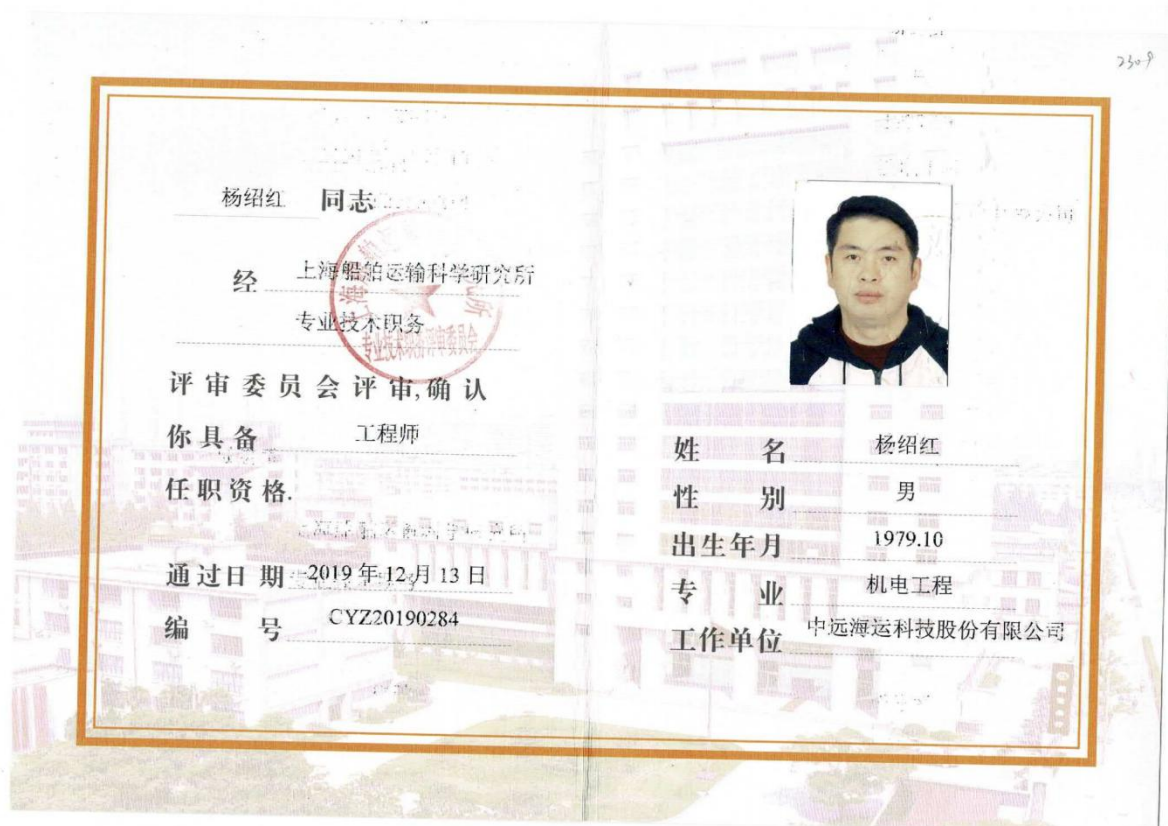 2309
杨绍红 同志
经 上海船舶运输科学研究所
专业技术职务
专业技术职务评审委员会
评审委员会评审,确认
你具备 工程师
任职资格.
通过日期 2019年12月13日
编号 CYZ20190284
姓名 杨绍红
性别 男
出生年月 1979.10
专业 机电工程
工作单位 中远海运科技股份有限公司